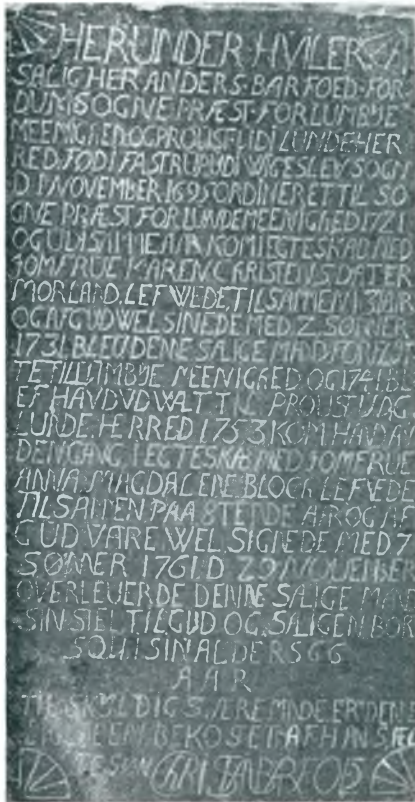 HER UNDER HVILER
SALIG HER ANDERS BARFOED FOR
DUM SOGNE PRÆST FOR LUMBYE
MEENIGHED OG PROUST UDI LUNDE HER
RED FØD I FASTRUP UDI SOGN
D 1 NOVEMBER 1695 ORDINERET TIL SO
GNE PRÆST FOR LUNDE MEENIGHED 1721
OG UDI SAMME KOM I EGTESKAB MED
JOMFRUE KAREN CHRISTENSDATER
MORLAND. LEFWEDE TILSAMEN AAR
OG AF GUD WELSINEDE MED 2 SØNNER
1731 BLEV DENNE SALIGE MAND
TE TIL LUMBYE MEENIGHED OG 1741 BL
EF HAND UDWALT TIL PROUST UDG
LUNDE HERRED 1753 KOM HAND AV
DEN GANG I EGTESKAB MED JOMFRUE
ANNA MAGDALENE BLOCK LEFVEDE
TILSAMEN PAA 8TENDE AAR OG AF
GUD VARE WEL SIGNEDE MED 7
SØNNER 1761 D 29 NOUEMBER
OVERLEUERDE DENNE SALIGE MAN
SIN SIEL TIL GUD OG SALIGEN BOR
SQUT SIN ALDERS 66
AAR
SKYLDIGST ÆREMINDE ER DEN
BEKOSTET AF HANS ÆL
SØN